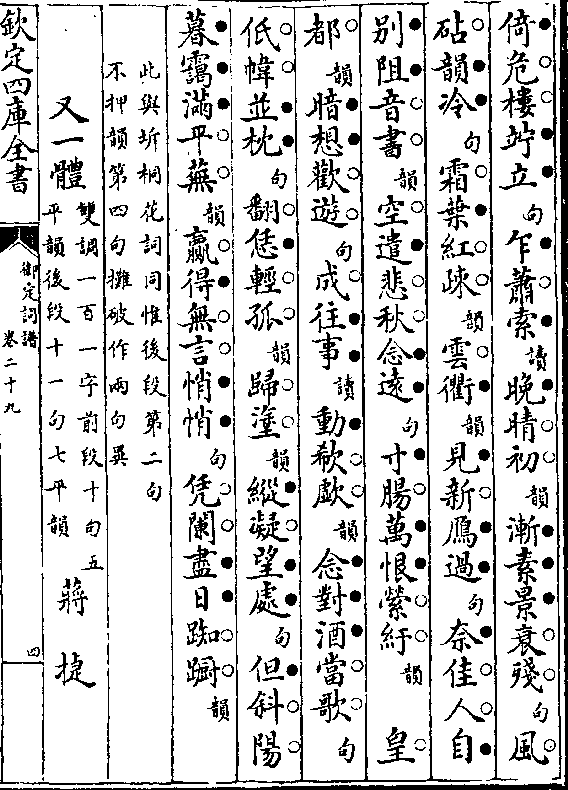 倚危樓竚立句乍蕭索讀晚晴初韻漸素景衰殘句風
砧韻冷句霜葉紅疎韻雲衢韻見新鴈過句奈佳人自
别阻音書韻空遣悲秋念遠句寸腸萬恨縈紆韻皇
都韻暗想歡遊句成往事讀動欷歔韻念對酒當歌句
低幃並枕句翻恁輕孤韻歸塗韻縱凝望處句但斜陽
暮靄滿平蕪韻贏得無言悄悄句凭闌盡日踟蹰韻
此與拆桐花詞同惟後段第二句
不押韻第四句攤破作兩句異
又一體雙調一百一字前段十句五
平韻後段十一句七平韻蔣捷
欽定四庫全書
御定詞譜
卷二十九
四